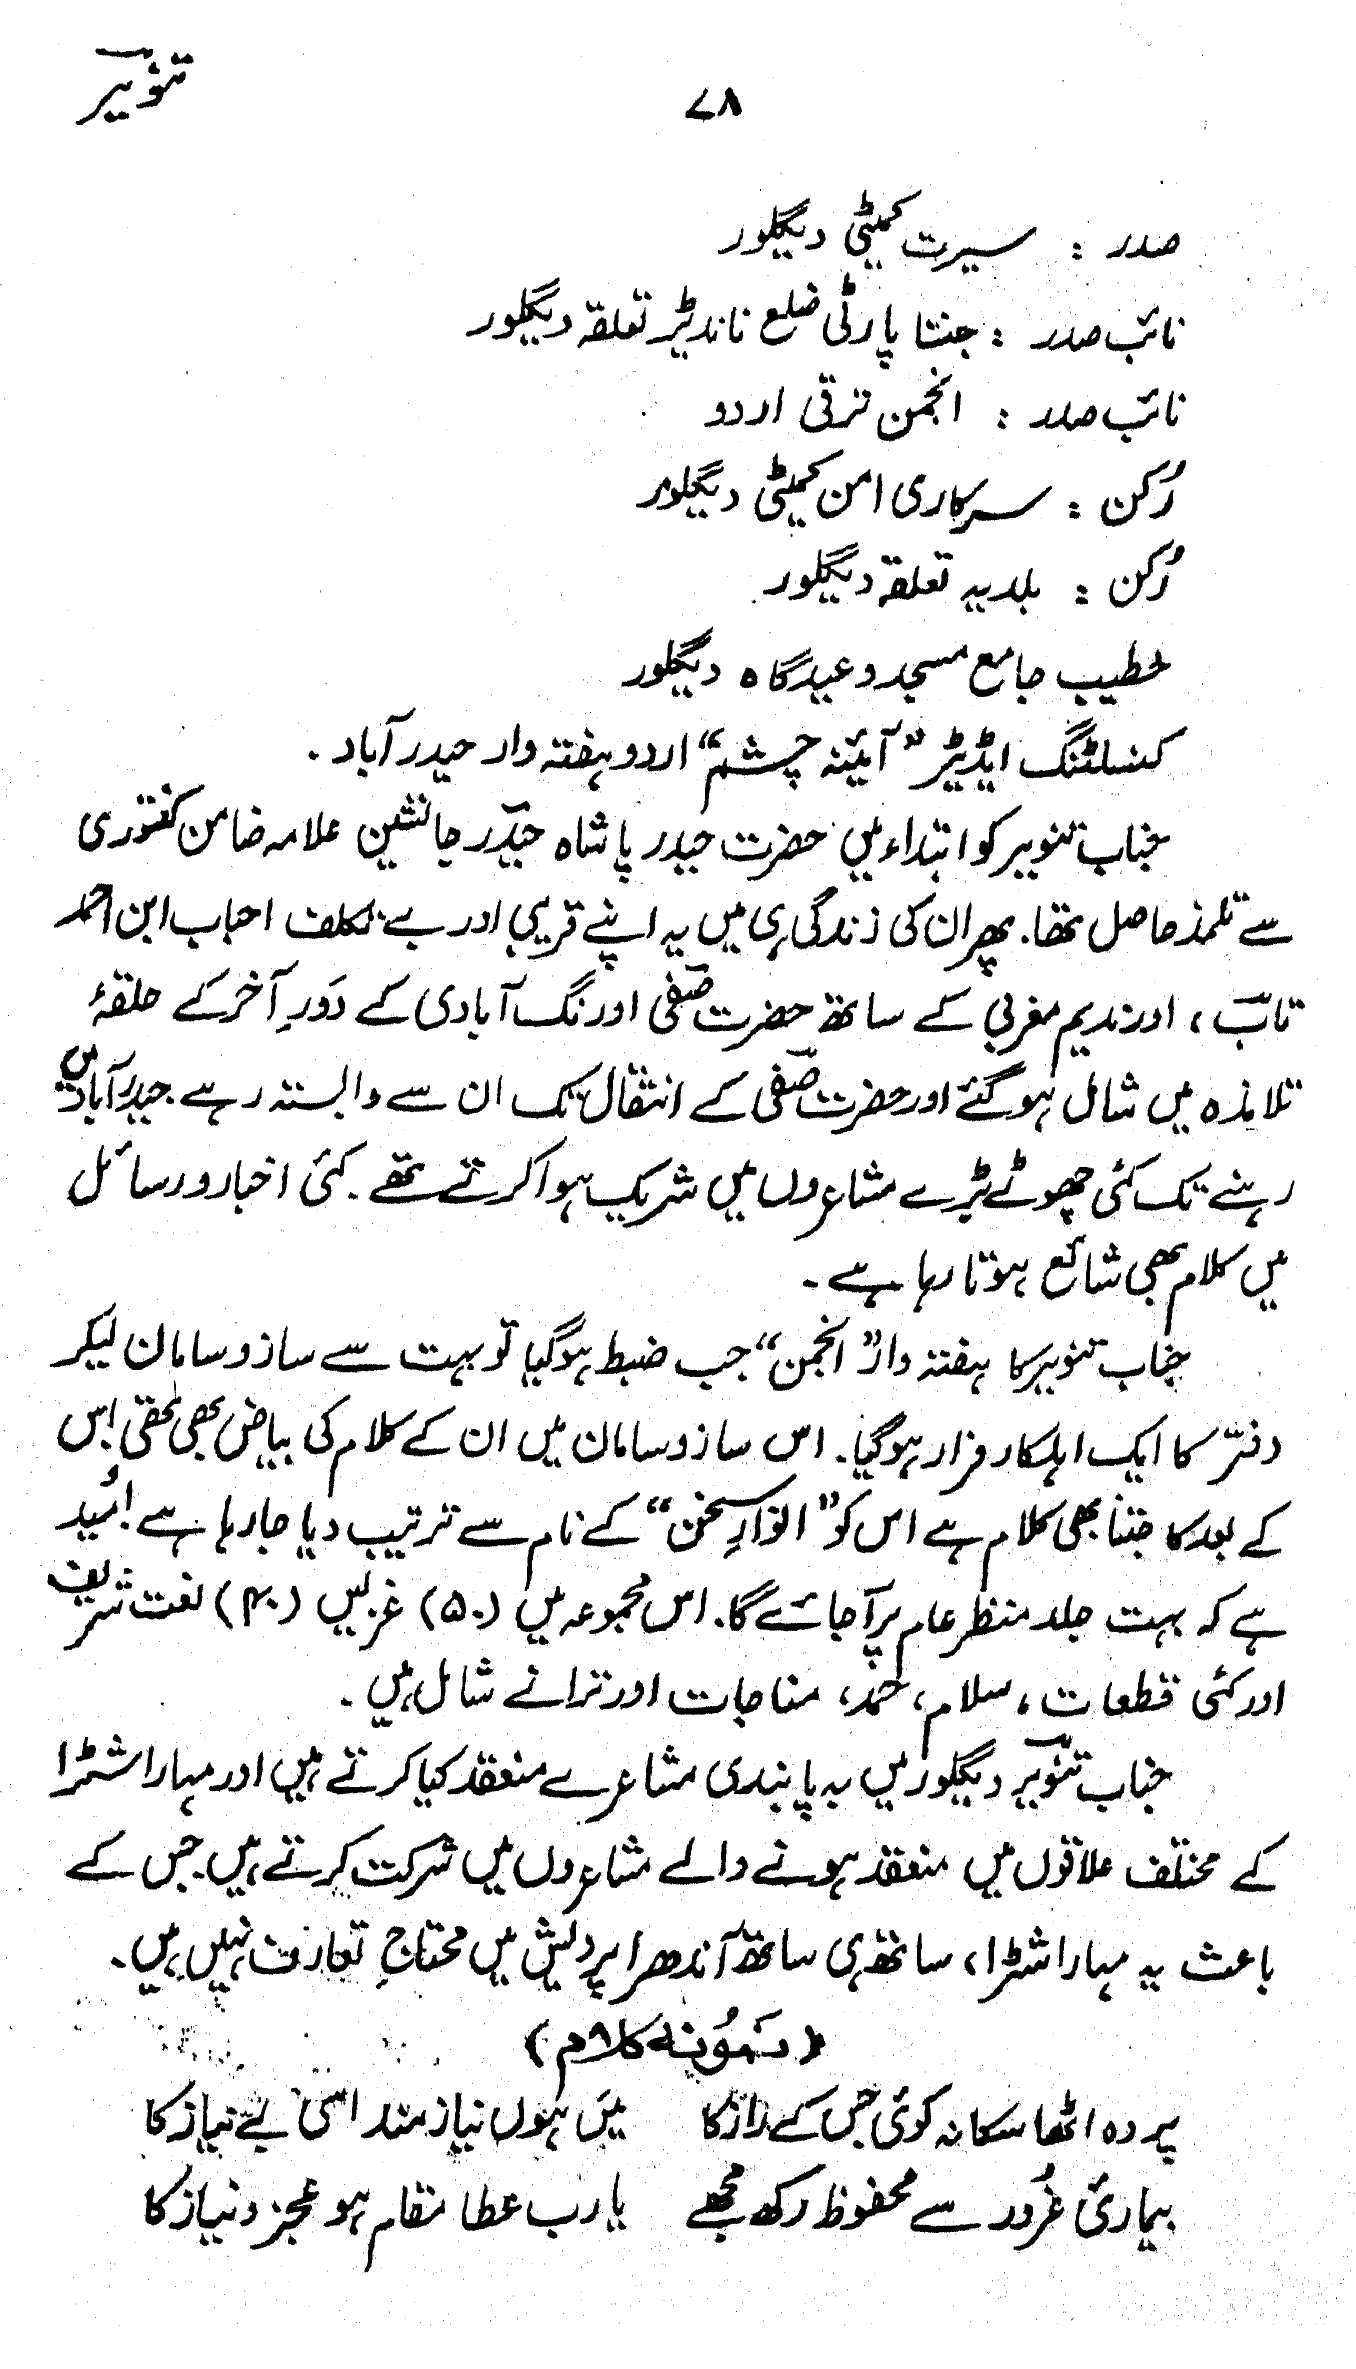 تنویر
۷۸
صدر : سیرت کمیٹی دیگلور
نائب صدر : جنتا پارٹی ضلع ناندیڑ تعلقہ دیگلور
نائب صدر : انجمن ترقی اردو
رُکن : سرکاری امن کمیٹی دیگلور
رُکن : بلدیہ تعلقہ دیگلور
خطیب جامع مسجد و عیدگاہ دیگلور
کنسلٹنگ ایڈیٹر ”آئینہ چشم“ اردو ہفتہ وار حیدرآباد۔
جناب تنویر کو ابتداء میں حضرت حیدر پاشاہ حیدؔر جانشین علامہ ضامن کنتوری
سے تلمذ حاصل تھا۔ پھر ان کی زندگی ہی میں یہ اپنے قریبی اور بے تکلف احباب ابن احمد
تابؔ، اور ندیم مغربی کے ساتھ حضرت صفؔی اورنگ آبادی کے دَورِ آخر کے حلقۂ
تلامذہ میں شامل ہوگئے اور حضرت صفؔی کے انتقال تک ان سے وابستہ رہے۔ حیدرآباد میں
رہنے تک کئی چھوٹے بڑے مشاعروں میں شریک ہوا کرتے تھے۔ کئی اخبار و رسائل
میں کلام بھی شائع ہوتا رہا ہے۔
جناب تنویر کا ہفتہ وار ”انجمن“ جب ضبط ہوگیا تو بہت سے ساز و سامان لیکر
دفتر کا ایک اہلکار فرار ہوگیا۔ اس ساز و سامان میں ان کے کلام کی بیاض بھی تھی اس
کے بعد کا جتنا بھی کلام ہے اس کو ”انوارِ سخن“ کے نام سے ترتیب دیا جارہا ہے۔ اُمید
ہے کہ بہت جلد منظر عام پر آجائے گا۔ اس مجموعہ میں (۵۰) غزلیں (۴۰) نعت شریف
اور کئی قطعات، سلام، حمد، مناجات اور ترانے شامل ہیں۔
جناب تنویرؔ دیگلور میں بہ پابندی مشاعرے منعقد کیا کرتے ہیں اور مہاراشٹرا
کے مختلف علاقوں میں منعقد ہونے والے مشاعروں میں شرکت کرتے ہیں۔ جس کے
باعث یہ مہاراشٹرا، ساتھ ہی ساتھ آندھرا پردیش میں محتاجِ تعارف نہیں ہیں۔
(نمُونہ کلام)
پردہ اٹھا سکا نہ کوئی جس کے راز کا میں ہوں نیاز مند اسی بے نیاز کا
بیماریٔ غُرور سے محفوظ رکھ مجھے یارب عطا مقام ہو عجز و نیاز کا